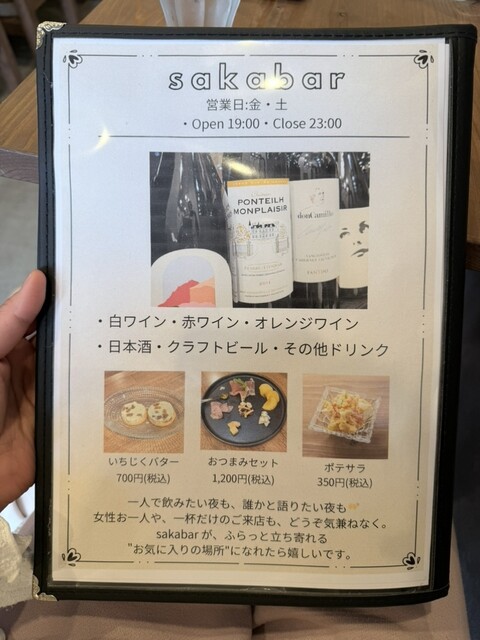 sakabar
営業日:金・土
・Open 19:00・Close 23:00
PONTEILH
MONPLAISIR
donCamillo
・白ワイン・赤ワイン・オレンジワイン
・日本酒・クラフトビール・その他ドリンク
いちじくバター
700円(税込)
おつまみセット
1,200円(税込)
ポテサラ
350円(税込)
一人で飲みたい夜も、誰かと語りたい夜も
女性お一人や、一杯だけのご来店も、どうぞ気兼ねなく。
sakabarが、ふらっと立ち寄れる
"お気に入りの場所"になれたら嬉しいです。